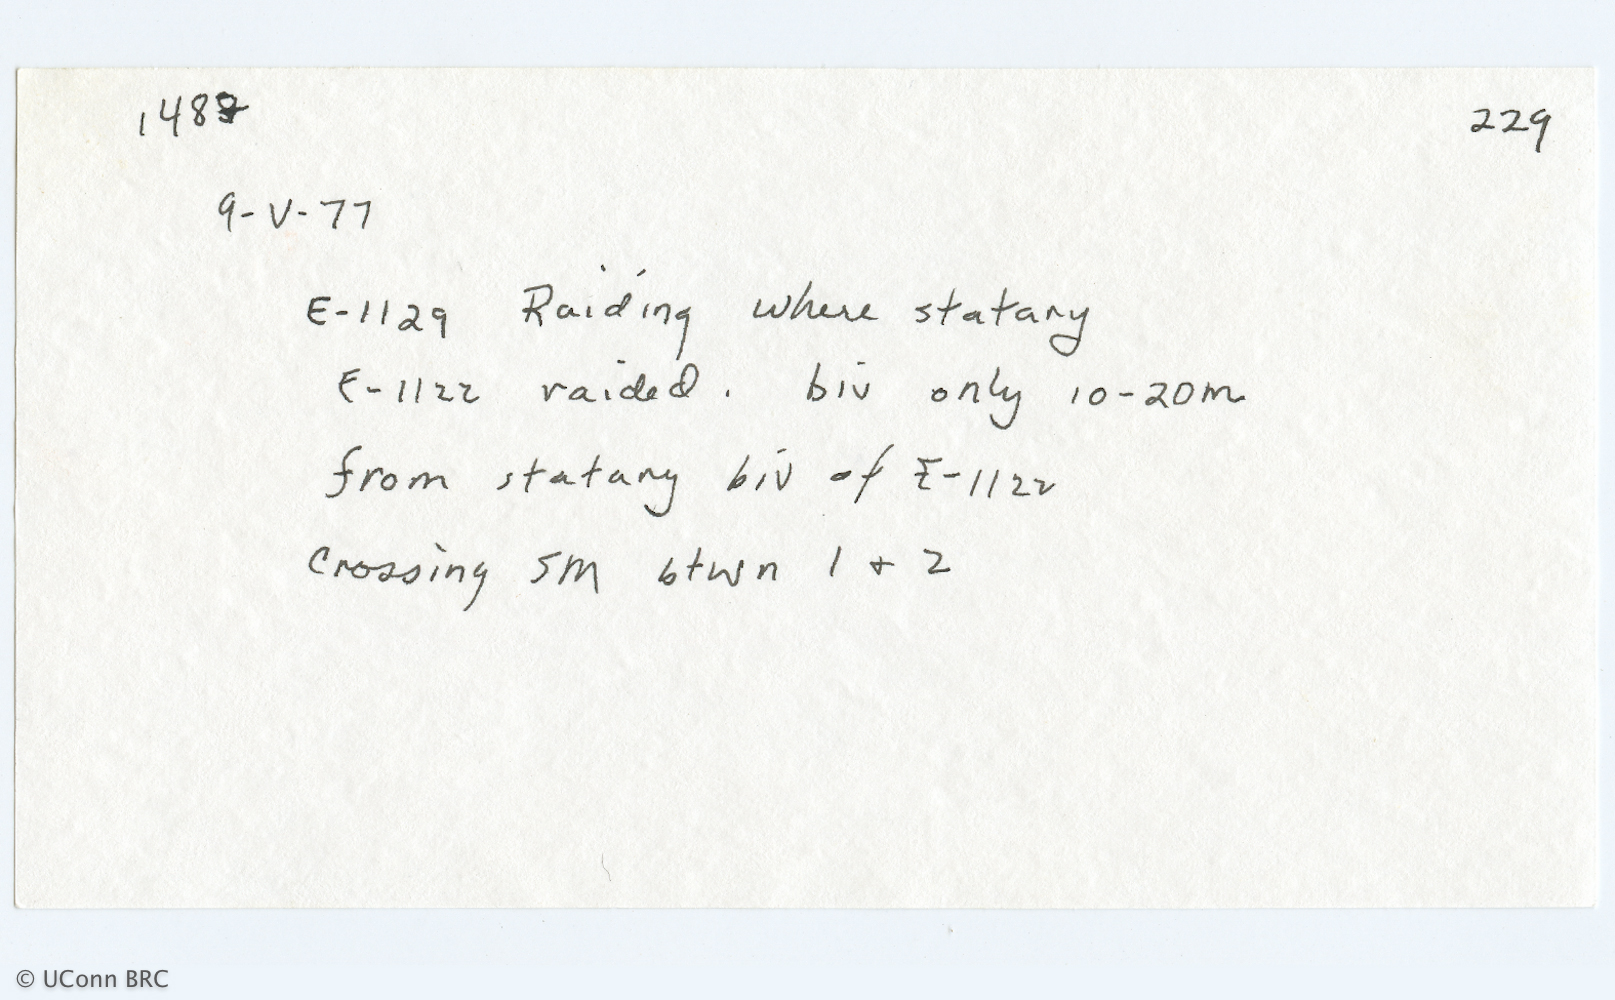 229
9-V-77
E-1129 Raiding where statary
E-1122 raided. biv only 10-20m
from statary biv of E-1122
Crossing SM btwn 1 + 2
© UConn BRC